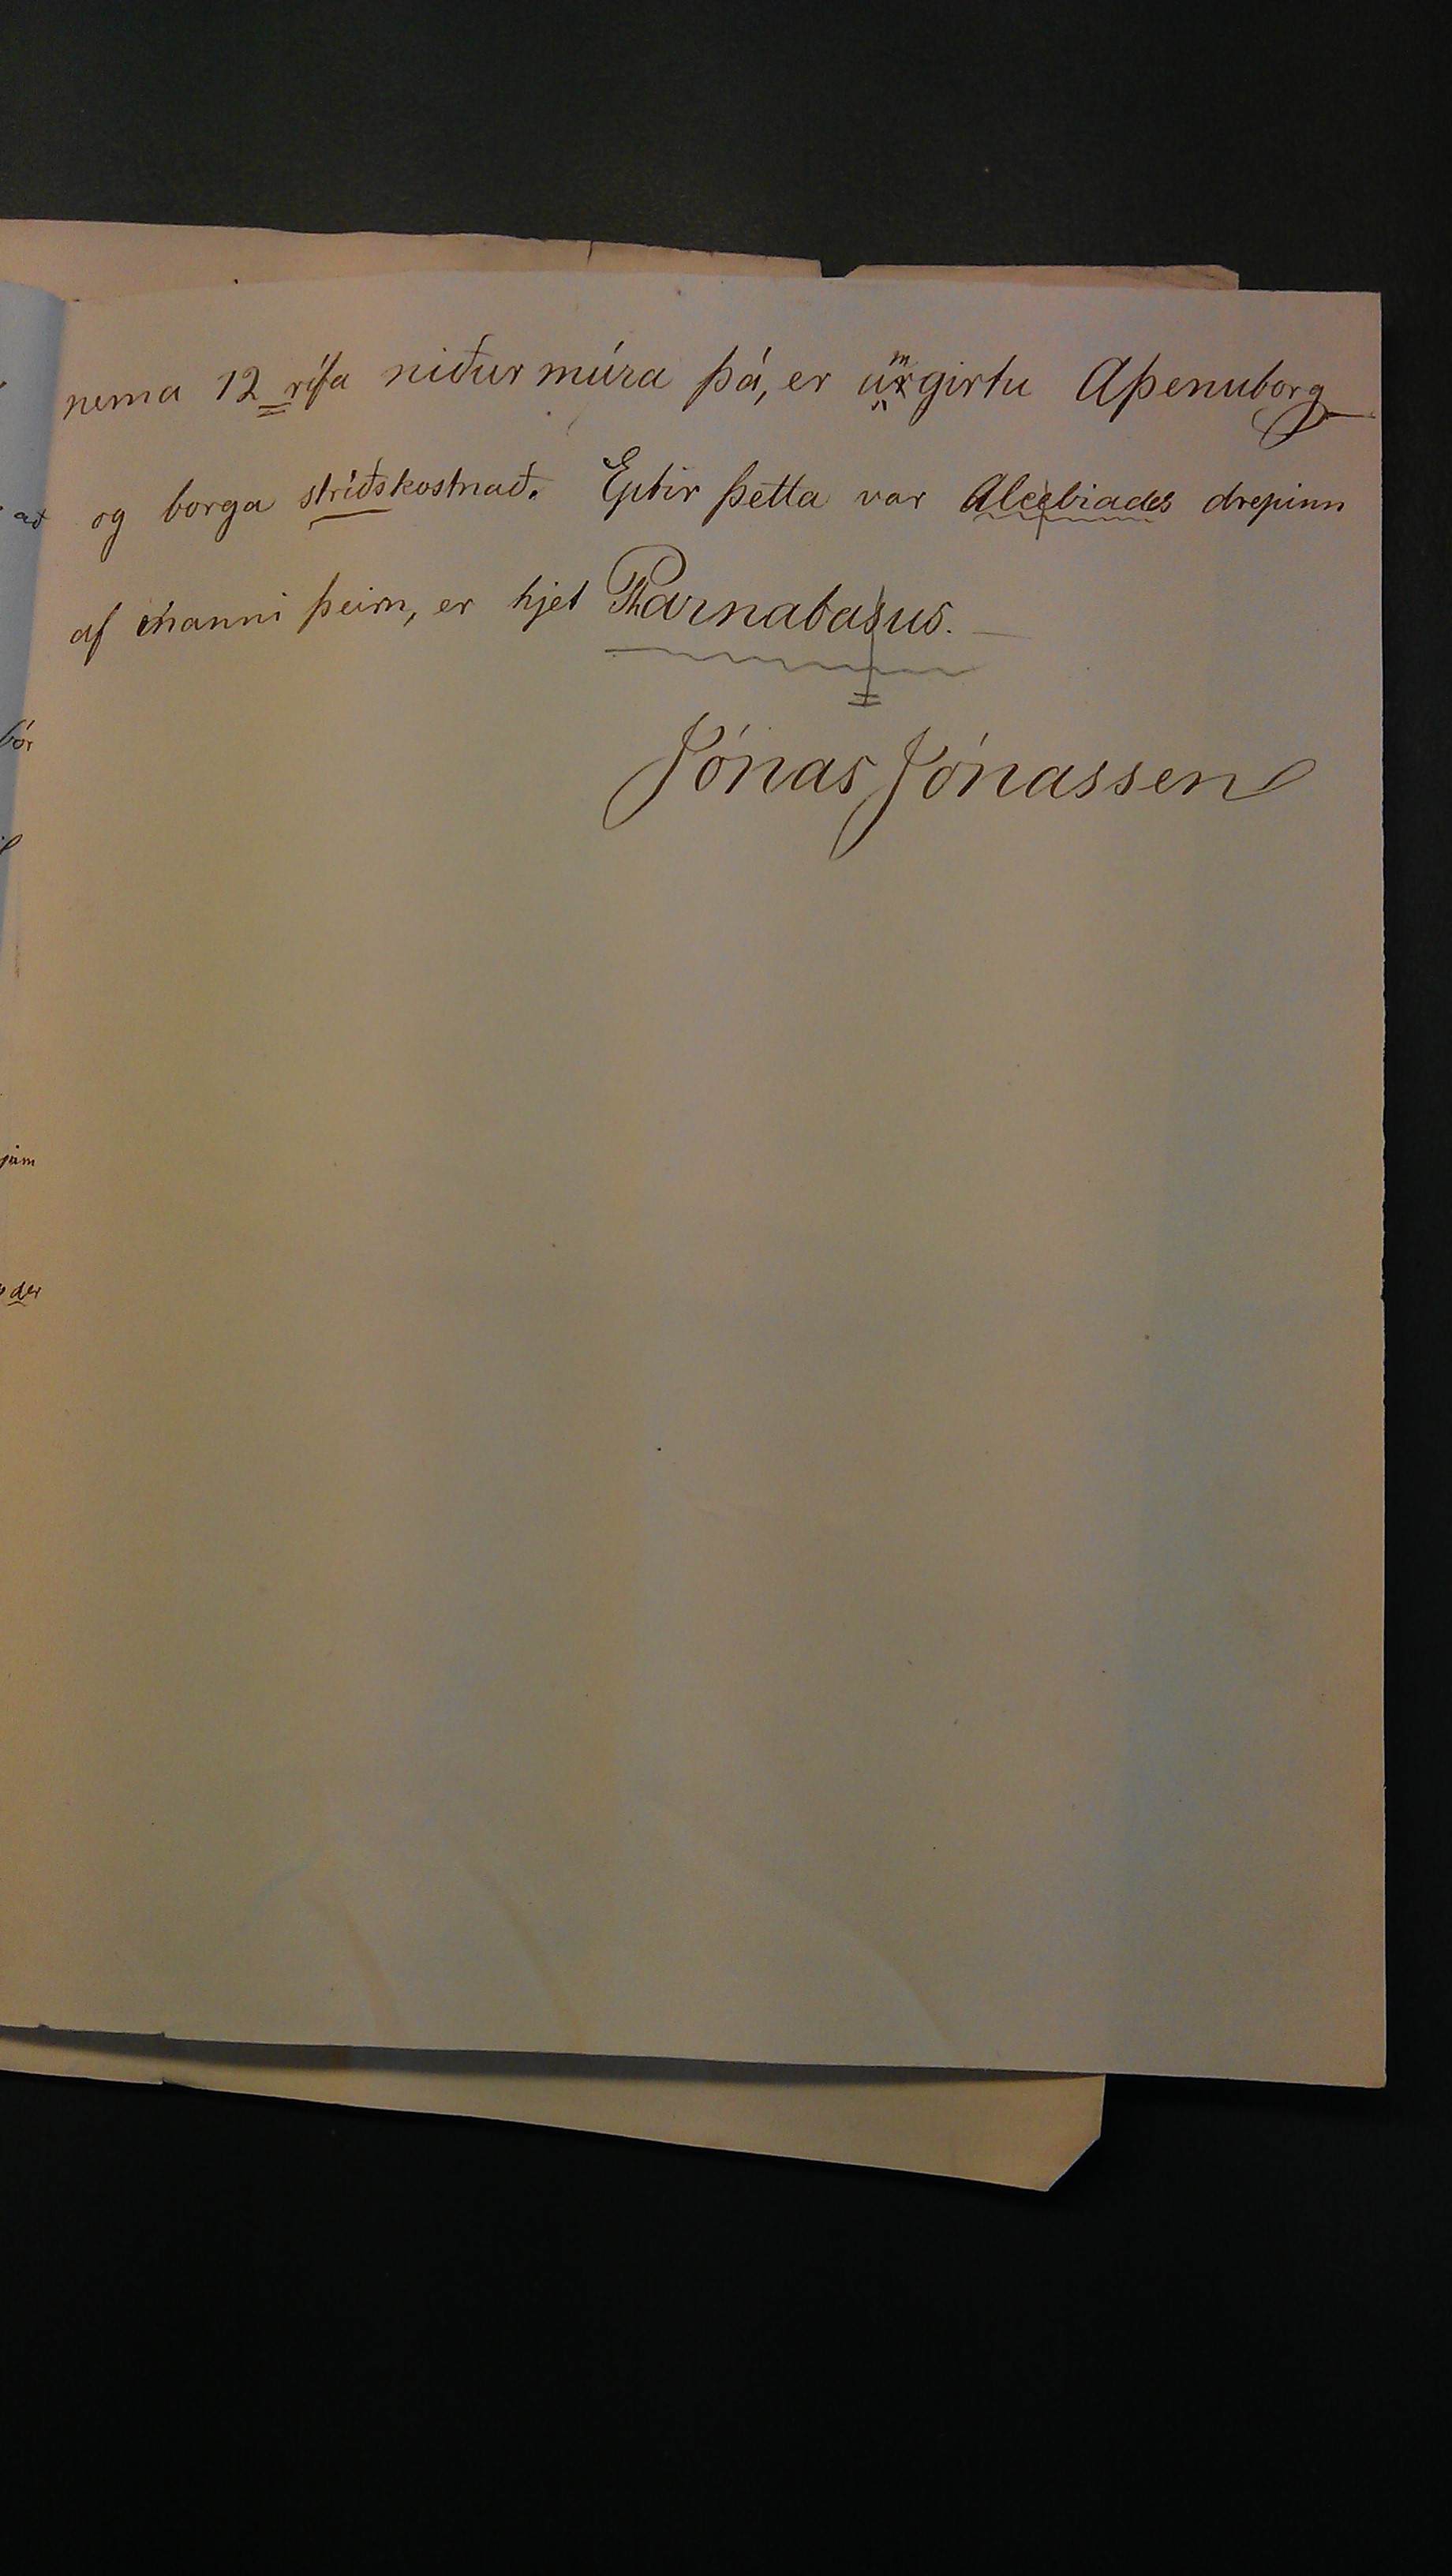 nema 12 rífa niður múra þá, er umgirtu Aþenuborg
að og borga stríðskostnað. Eptir þetta var Alcebiades drepinn
af manni þeim, er hjet Pharnabasus.
Jónas Jónassen